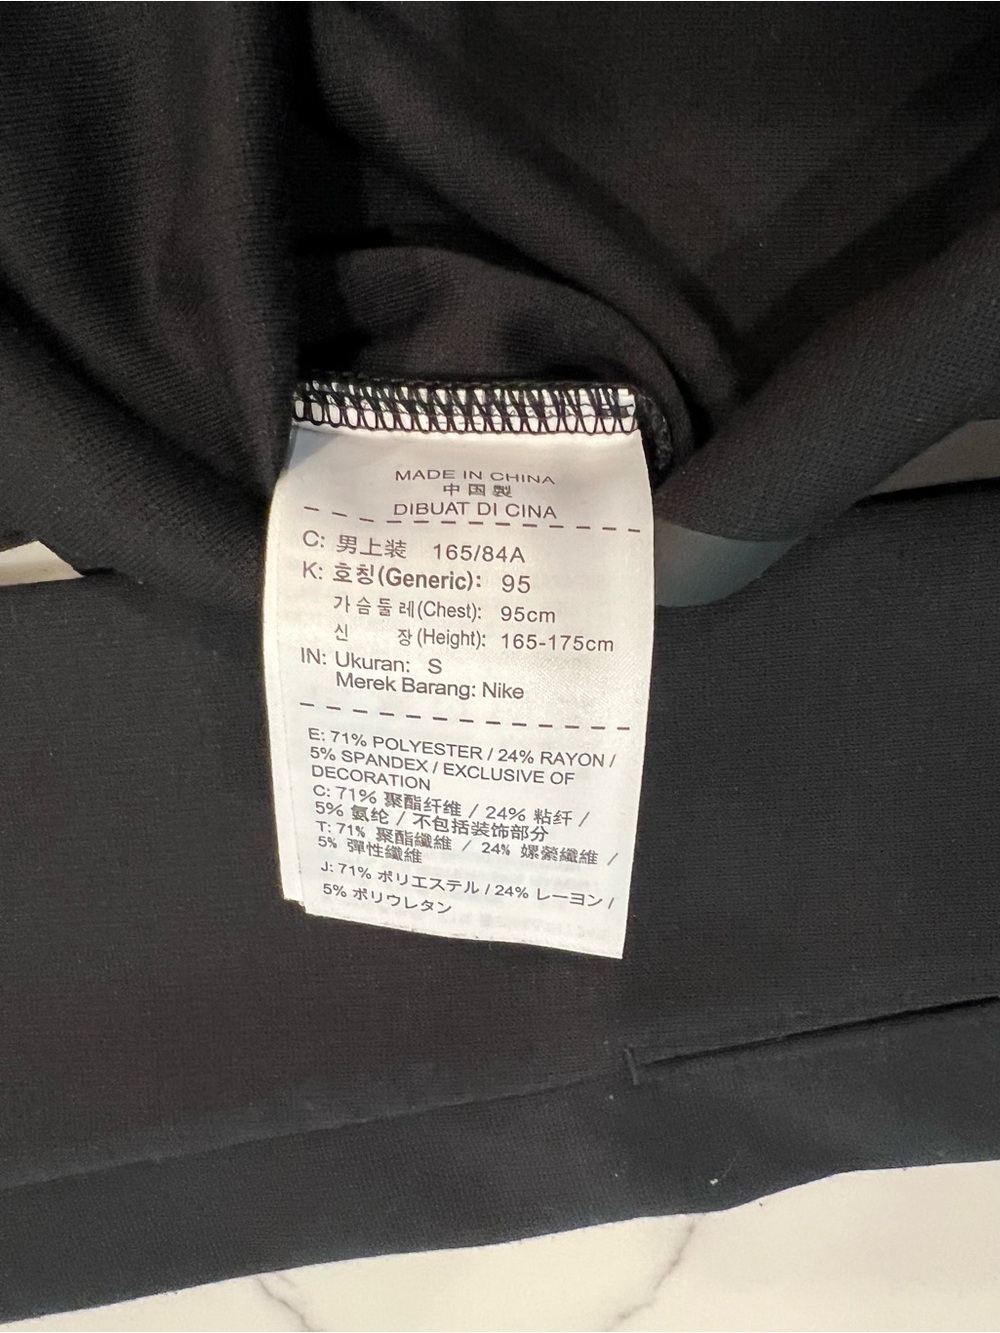 MADE IN CHINA
中国製
DIBUAT DI CINA
C: 男上装 165/84A
K: 호칭(Generic): 95
가슴둘레(Chest): 95cm
신 장(Height): 165-175cm
IN: Ukuran: S
Merek Barang: Nike
E: 71% POLYESTER / 24% RAYON /
5% SPANDEX / EXCLUSIVE OF
DECORATION
C: 71% 聚酯纤维 / 24% 粘纤 /
5% 氨纶 / 不包括装饰部分
T: 71% 聚酯纖維 / 24% 嫘縈纖維 /
5% 彈性纖維
J: 71% ポリエステル / 24% レーヨン /
5% ポリウレタン